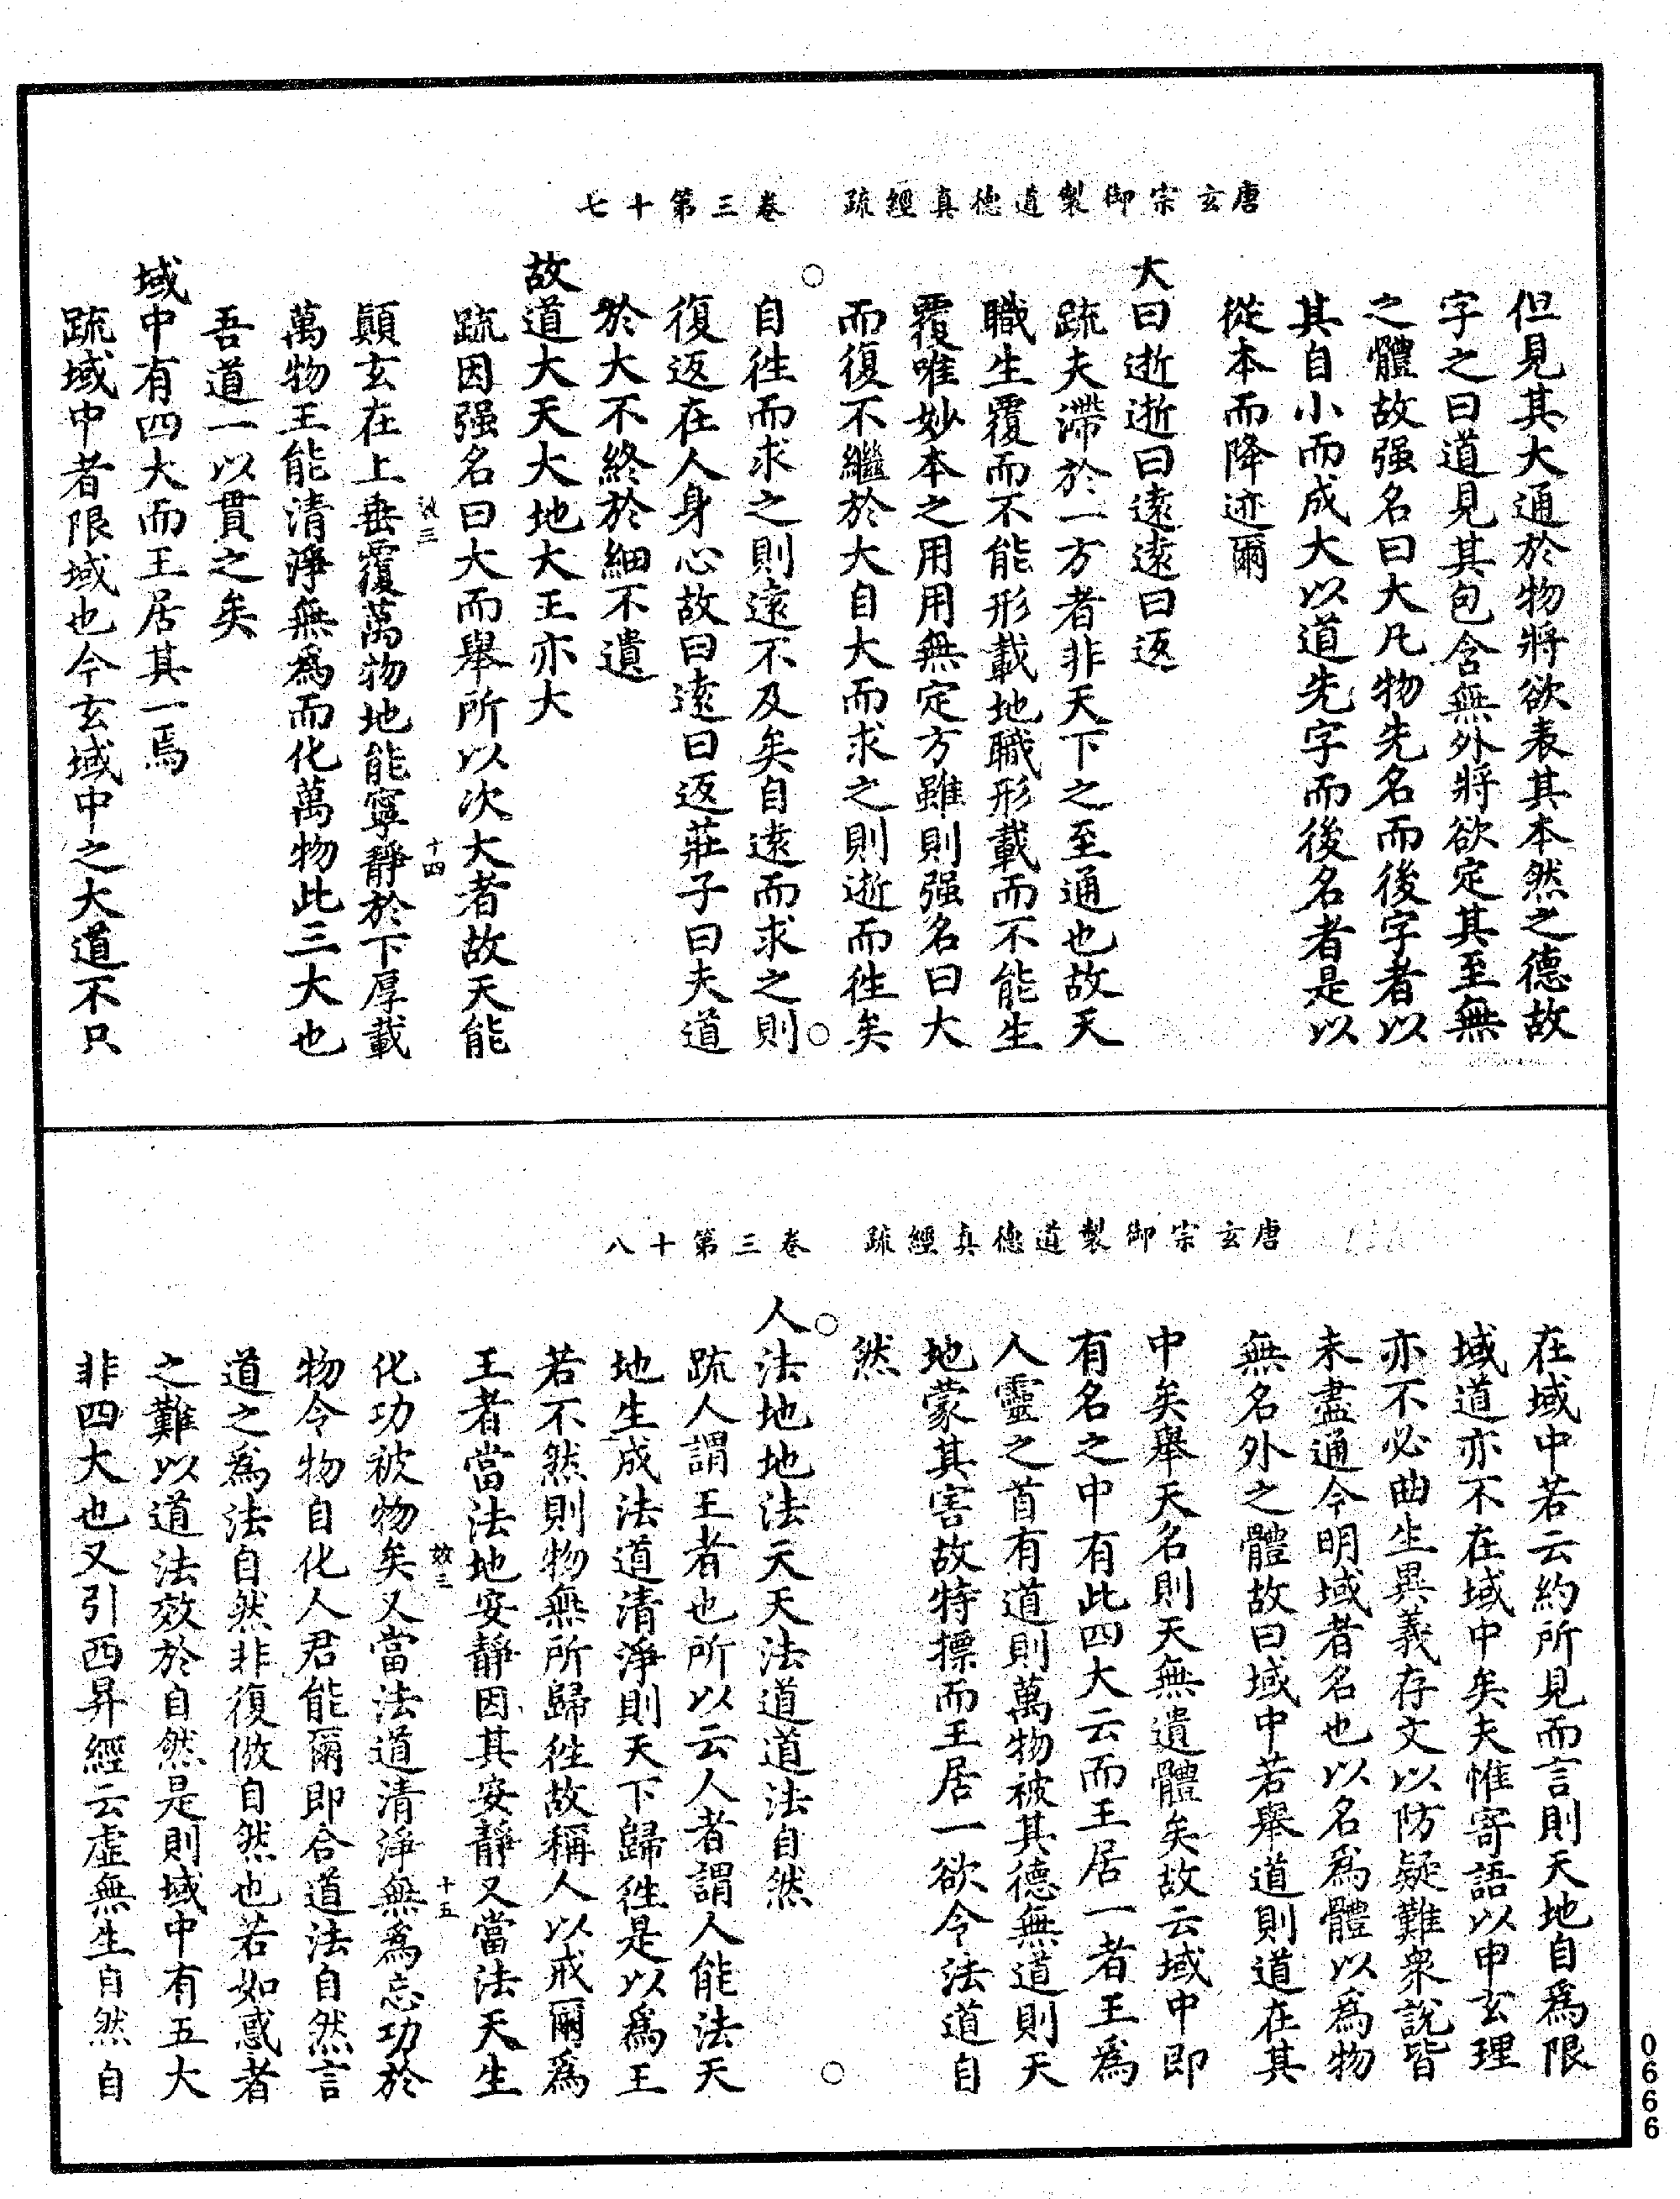 唐玄宗御製道德真經疏 卷三第十七
但見其大通於物將欲表其本然之德故
字之曰道見其包含無外將欲定其至無
之體故强名曰大凡物先名而後字者以
其自小而成大以道先字而後名者是以
從本而降迹爾
大曰逝逝曰遠遠曰返
疏夫滯於一方者非天下之至通也故天
職生覆而不能形載地職形載而不能生
覆唯妙本之用用無定方雖則强名曰大
而復不繼於大自大而求之則逝而往矣
自往而求之則遠不及矣自遠而求之則
復返在人身心故曰遠曰返莊子曰夫道
於大不終於細不遺
故道大天大地大王亦大
疏因强名曰大而舉所以次大者故天能
十四
顛玄在上垂覆萬物地能寧靜於下厚載
萬物王能清淨無爲而化萬物此三大也
吾道一以貫之矣
域中有四大而王居其一焉
疏域中者限域也今玄域中之大道不只
唐玄宗御製道德真經疏 卷三第十八
在域中若云約所見而言則天地自爲限
域道亦不在域中矣夫惟寄語以申玄理
亦不必曲生異義存文以防疑難衆說皆
未盡通今明域者名也以名爲體以爲物
無名外之體故曰域中若舉道則道在其
中矣舉天名則天無遺體矣故云域中即
有名之中有此四大云而王居一者王爲
人靈之首有道則萬物被其德無道則天
地蒙其害故特摽而王居一欲令法道自
然
人法地地法天天法道道法自然
疏人謂王者也所以云人者謂人能法天
地生成法道清淨則天下歸往是以爲王
若不然則物無所歸往故稱人以戒爾爲
王者當法地安靜因其安靜又當法天生
效三 十五
化功被物矣又當法道清淨無爲忘功於
物令物自化人君能爾即合道法自然言
道之爲法自然非復倣自然也若如惑者
之難以道法效於自然是則域中有五大
非四大也又引西昇經云虛無生自然自
0666